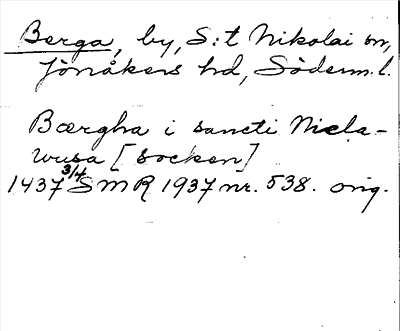 Berga, by, S:t Nikolai sn,
Jönåkers hd, Söderm. l.
Bærgha i sancti Nicla-
wusa [socken]
1437 3/4 SMR 1937 nr. 538. orig.